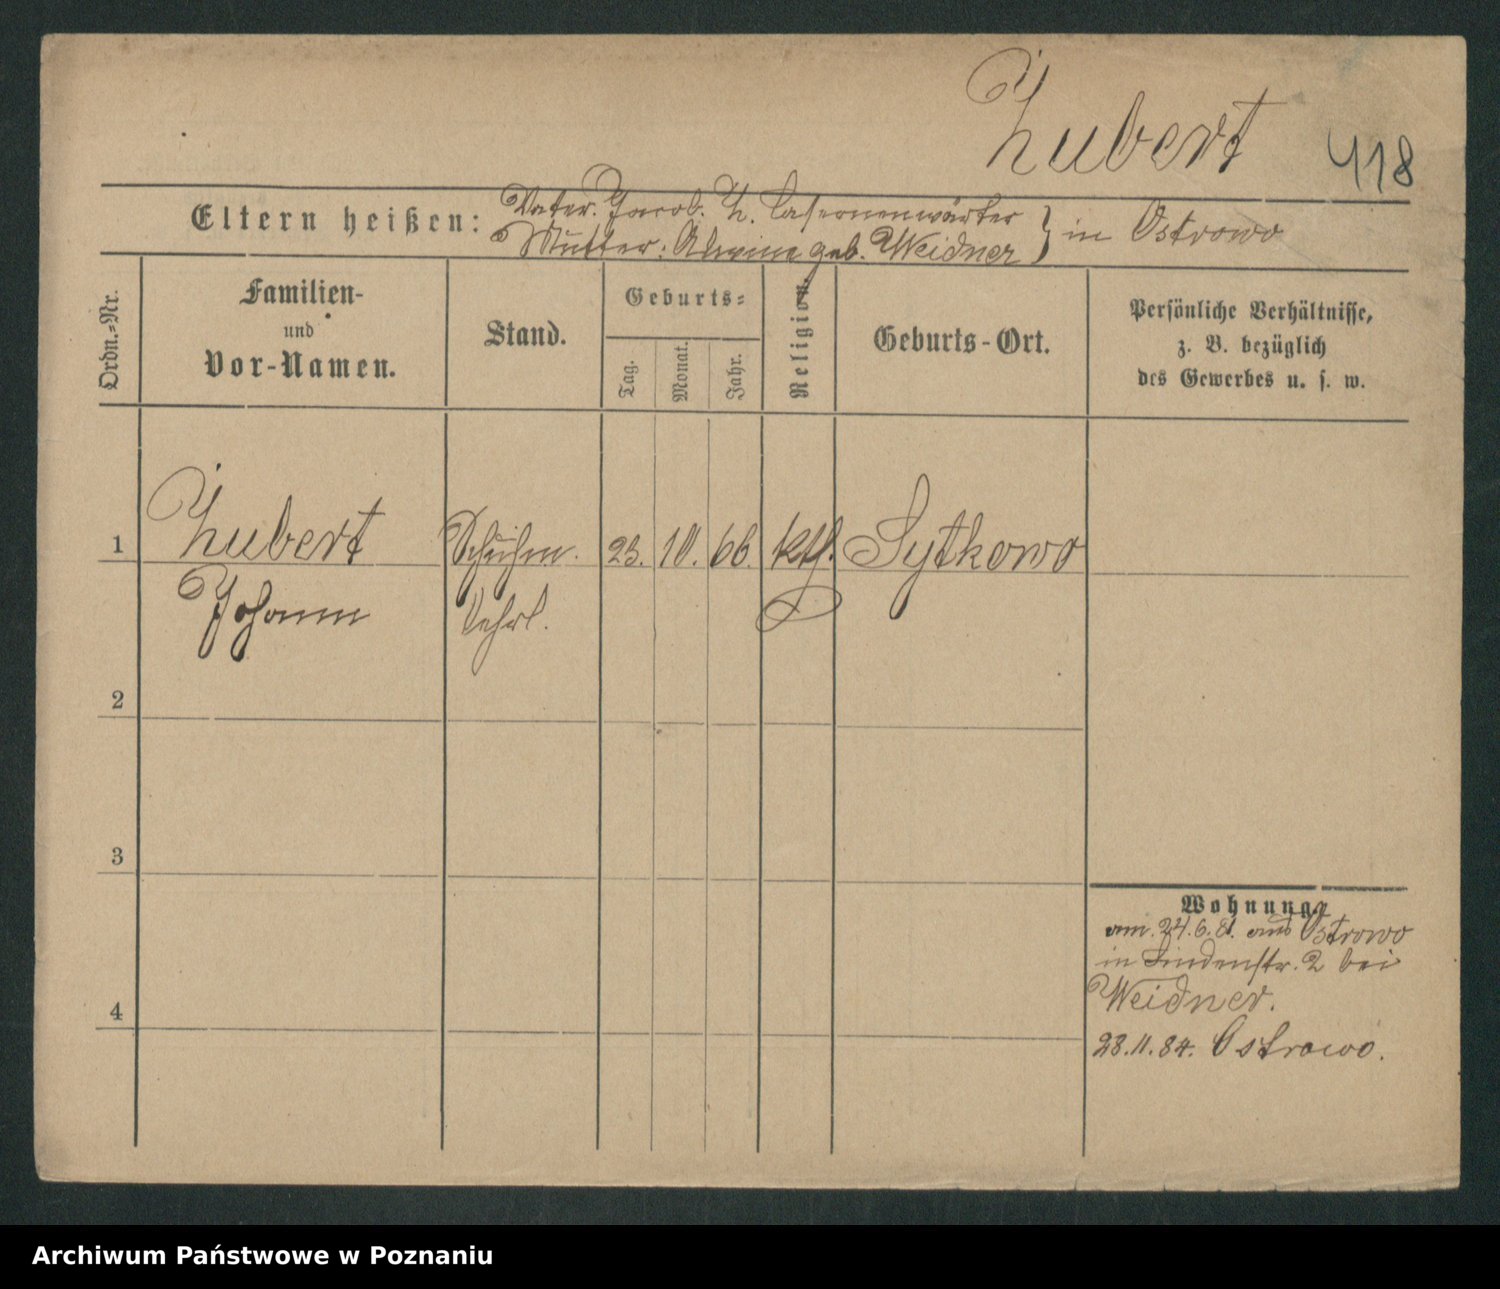 Żubert
418
Eltern heißen: Vater: Jacob. Ż. Casernenwärter
Mutter: Alwine geb. Weidner } in Ostrowo
Ordn.=Nr.
Familien-
und
Vor-Namen.
Stand.
Geburts=
Tag.
Monat.
Jahr.
Religion.
Geburts-Ort.
Persönliche Verhältnisse,
z. B. bezüglich
des Gewerbes u. s. w.
1 Żubert Schuhm. 23. 10. 66. kth. Sytkowo
Johann Lehrl.
2
3
4
Wohnung.
am. 24.6.81. aus Ostrowo
in Lindenstr. 2 bei
Weidner.
23.11.84. Ostrowo.
Archiwum Państwowe w Poznaniu